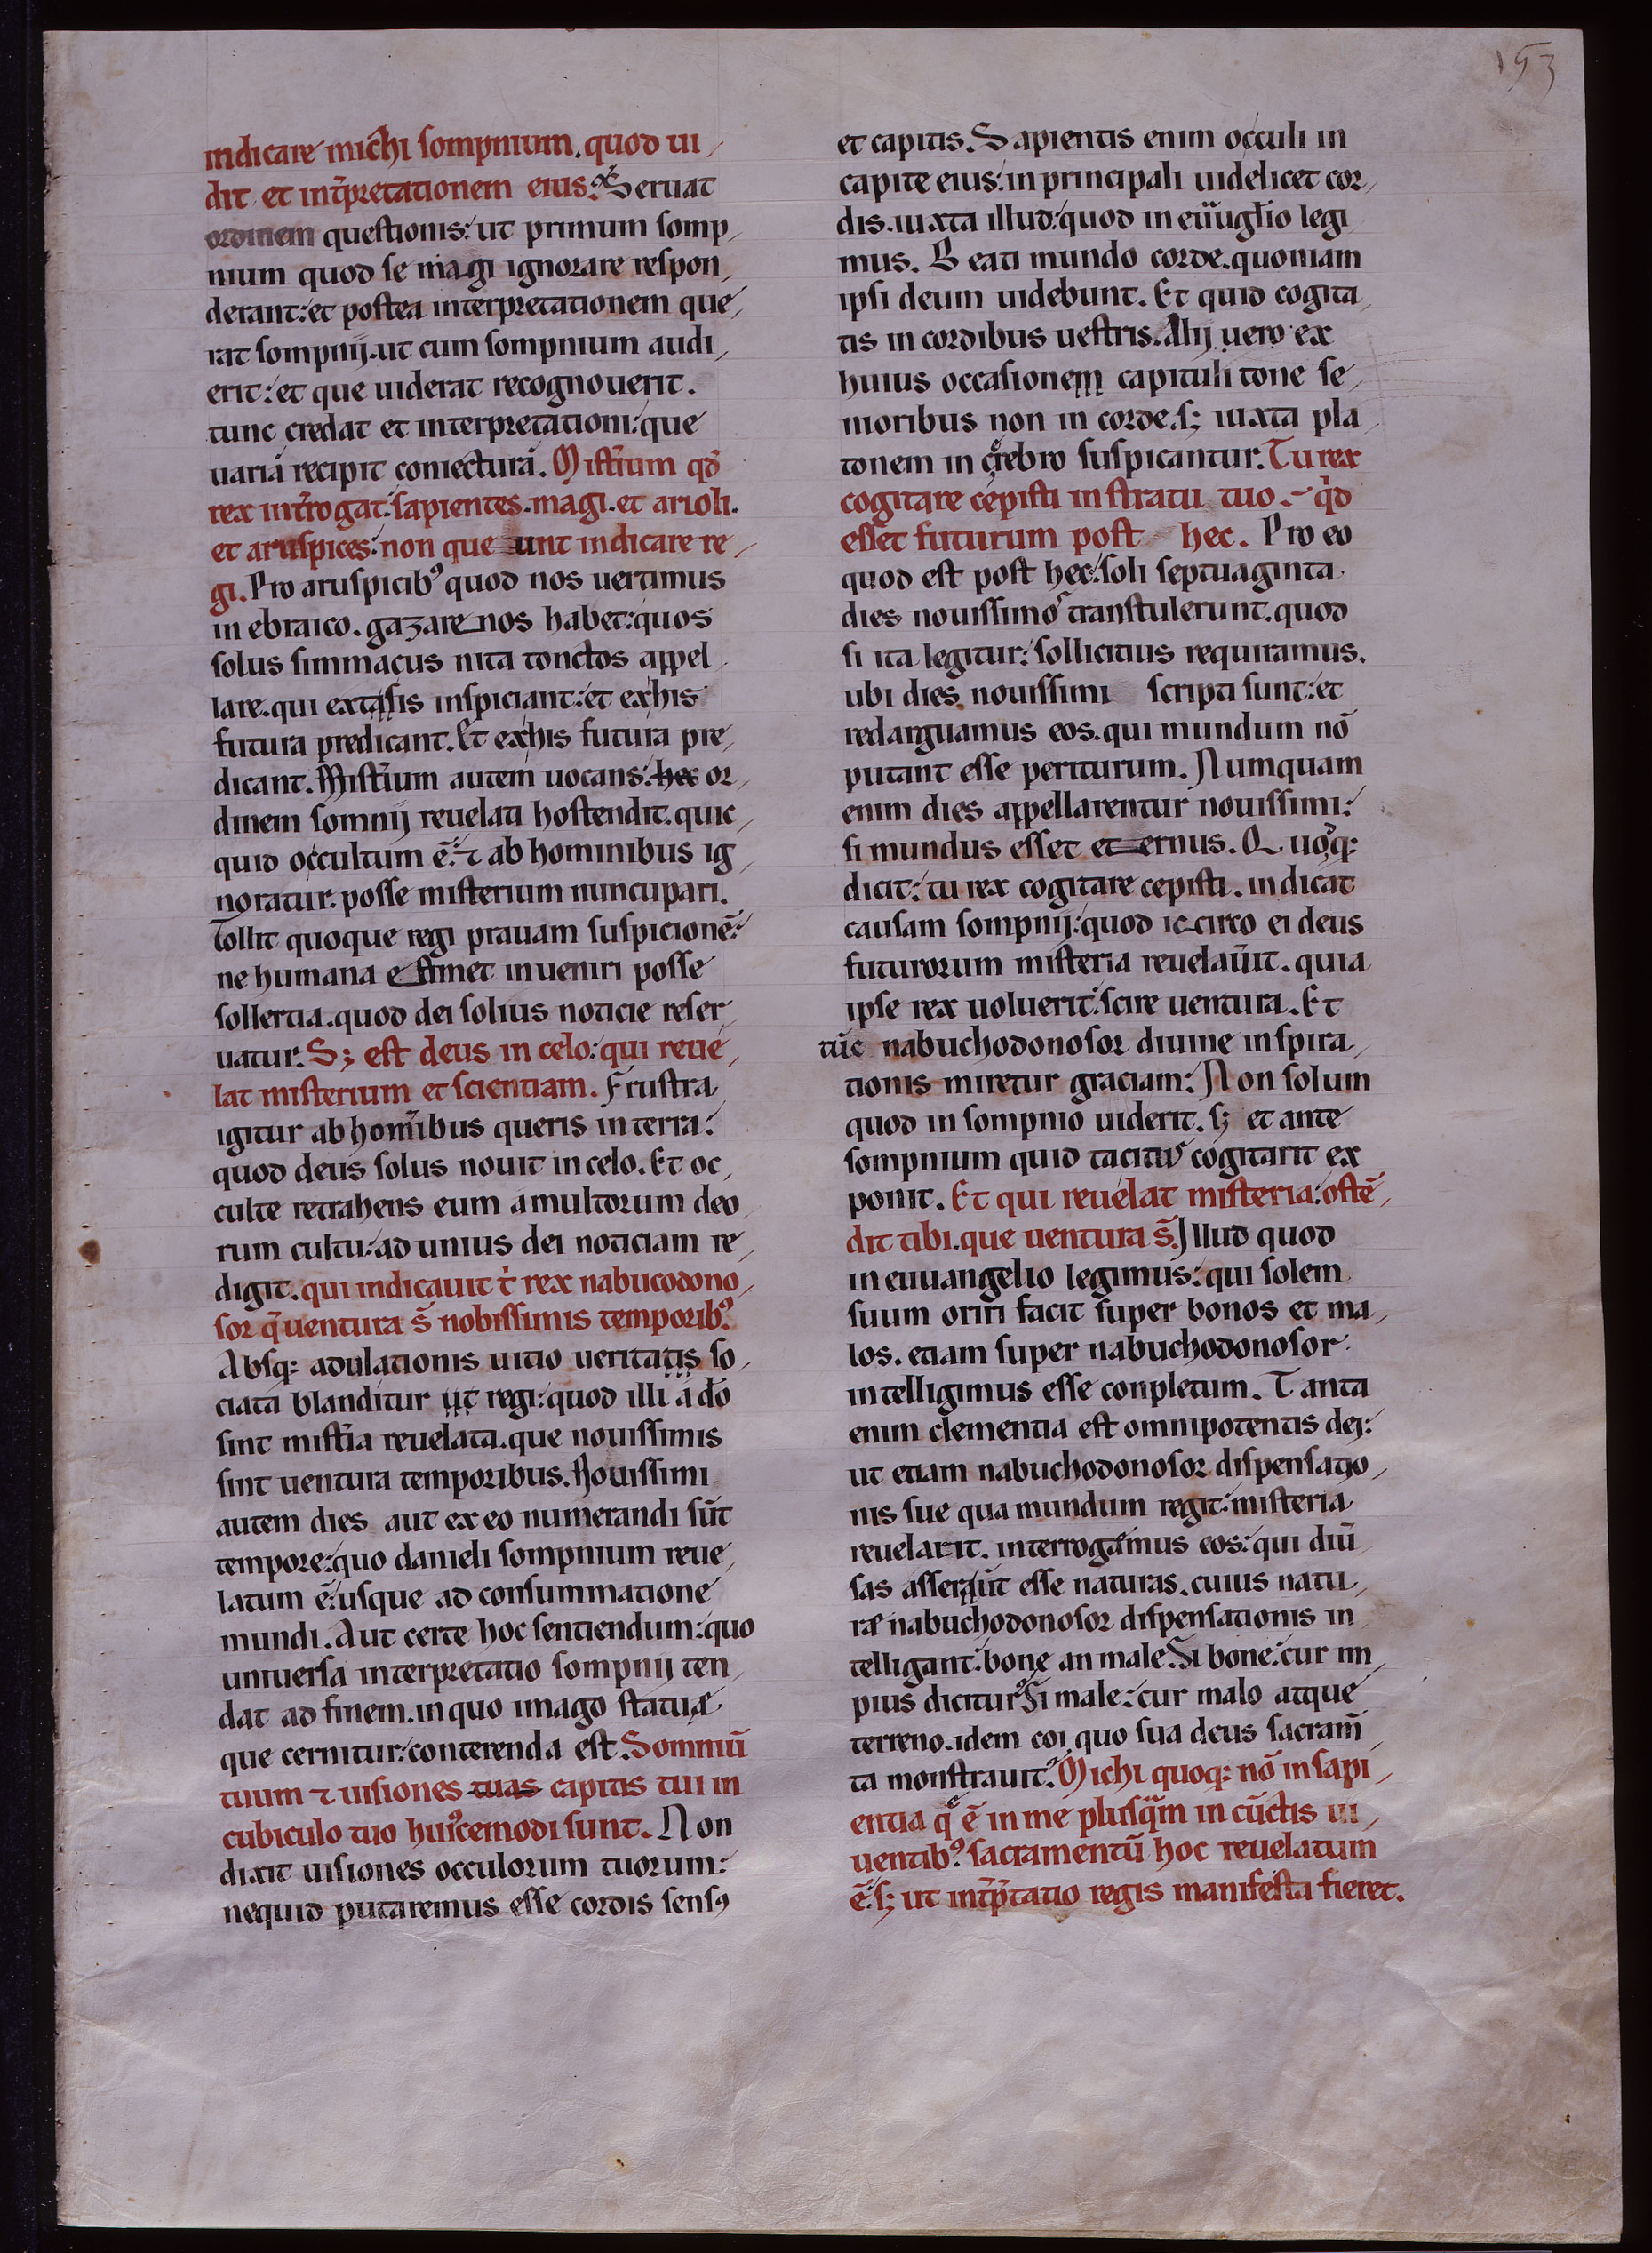 193
indicare michi sompnium. quod ui
dit et int̄pretationem eius. Seruat
ordinem questionis: ut primum somp
nium quod se magi ignorare respon
derant: et postea interpretationem que
rat sompnij. ut cum sompnium audi
erit: et que uiderat recognouerit.
tunc credat et interpretationi: que
uariā recipit coniecturā. Mist̄ium qd̄
rex int̄rogat: sapientes. magi. et arioli.
et aruspices: non que unt indicare re
gi. Pro aruspicibꝰ quod nos uertimus
in ebraico. gazarenos habet: quos
solus simmacus nita tonctos appel
lare. qui extasis inspiciant: et exhis
futura predicant. Et exhis futura pre
dicant. Mist̄ium autem uocans: hec or
dinem somnij reuelati hostendit. quic
quid occultum ē: ⁊ ab hominibus ig
noratur: posse misterium nuncupari.
Tollit quoque regi prauam suspicionē:
ne humana estimet inueniri posse
sollertia. quod dei solius noticie reser
uatur. Sꝫ est deus in celo: qui reue
lat misterium et scientiam. Frustra
igitur ab hom̄ibus queris in terra:
quod deus solus nouit in celo. Et oc
culte retrahens eum a multorum deo
rum cultu: ad unius dei noticiam re
digit. qui indicauit t̄ rex nabucodono
sor q̄ uentura s̄ nobissimis temporibꝰ.
Absqꝫ adulationis uitio ueritatis so
ciata blanditur ut regi: quod illi a dō
sint mist̄ia reuelata. que nouissimis
sint uentura temporibus. Nouissimi
autem dies aut ex eo numerandi sūt
tempore: quo danieli sompnium reue
latum ē: usque ad consummatione
mundi. Aut certe hoc sentiendum: quo
uniuersa interpretatio sompnij ten
dat ad finem. in quo imago statuę
que cernitur: conterenda est. Somniū
tuum ⁊ uisiones tuas capitis tui in
cubiculo tuo huiꝰcemodi sunt. Non
dixit uisiones occulorum tuorum:
nequid putaremus esse cordis sensꝰ
et capitis. Sapientis enim occuli in
capite eius: in principali uidelicet cor
dis. iuxta illud: quod in euuḡlio legi
mus. Beati mundo corde. quoniam
ipsi deum uidebunt. Et quid cogita
tis in cordibus uestris. Alij uero ex
huius occasionem capituli tone se
nioribus non in corde. sꝫ iuxta pla
tonem in cerebro suspicantur. Tu rex
cogitare cepisti in stratu tuo. qd̄
esset futurum post hec. Pro eo
quod est post hec: soli septuaginta
dies nouissimos transtulerunt. quod
si ita legitur: sollicitius requiramus.
ubi dies nouissimi scripti sunt: et
redarguamus eos. qui mundum nō
putant esse periturum. Numquam
enim dies appellarentur nouissimi:
si mundus esset eternus. Quoqꝫ
dicit: tu rex cogitare cepisti. indicat
causam sompnij: quod iccirco ei deus
futurorum misteria reuelauīt. quia
ipse rex uoluerit: scire uentura. Et
tūc nabuchodonosor diuine inspira
tionis miretur graciam: Non solum
quod in sompnio uiderit. sꝫ et ante
sompnium quid tacitus cogitarit ex
ponit. Et qui reuelat misteria: ostē
dit tibi. que uentura s̄. Illud quod
in euuangelio legimus: qui solem
suum oriri facit super bonos et ma
los. etiam super nabuchodonosor
intelligimus esse conpletum. Tanta
enim clementia est omnipotentis dei:
ut etiam nabuchodonosor dispensatio
nis sue qua mundum regit: misteria
reuelarit. interrogemus eos: qui diū
sas asserūt esse naturas. cuius natu
re nabuchodonosor dispensationis in
telligant: bone an male. Si bone: cur im
pius dicitur? Si male: cur malo atque
terreno. idem coi quo sua deus sacram̄
ta monstrauit? Michi quoqꝫ nō in sapi
entia q̄ ē in me plusq̄m in cūctis ui
uentibꝰ. sacramentū hoc reuelatum
ē: sꝫ ut int̄p̄tatio regis manifesta fieret.